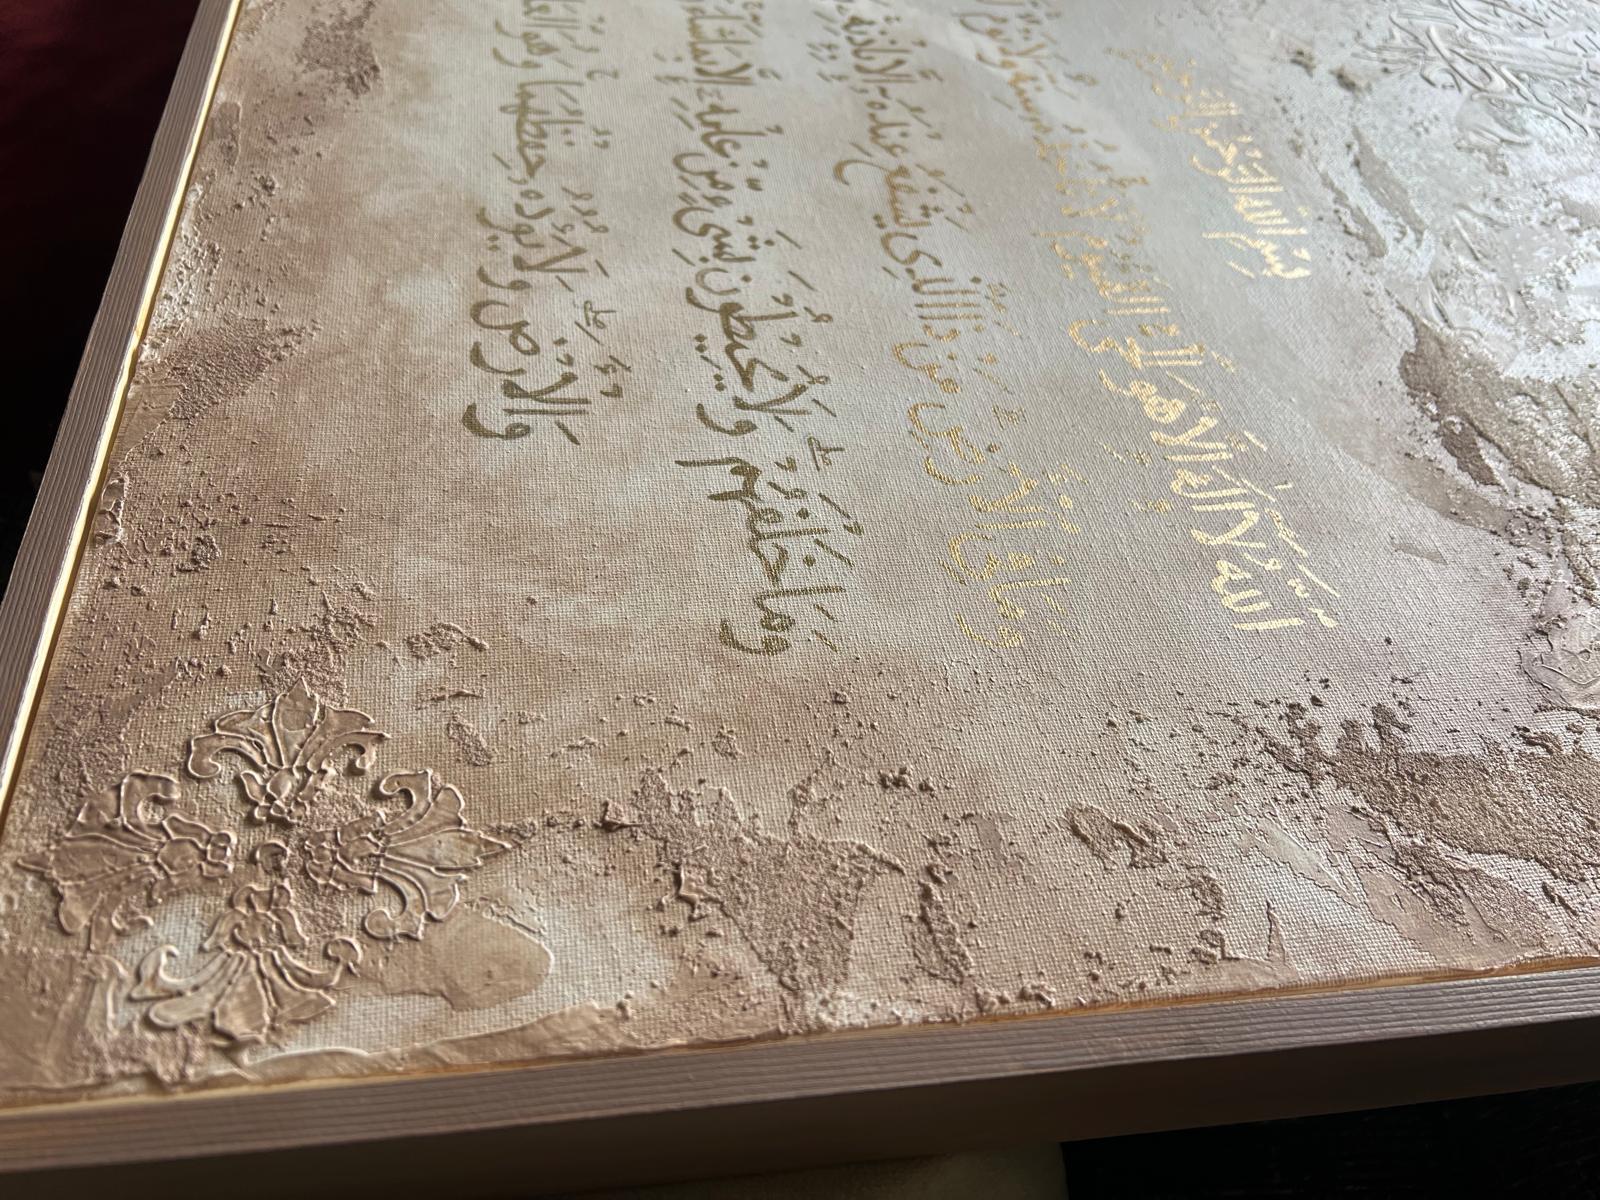 بِسْمِ اللَّهِ الرَّحْمَنِ الرَّحِيمِ
اَللّٰهُ لَآ اِلٰهَ اِلَّا هُوَ الْحَىُّ الْقَيُّوْمُ لَا تَاْخُذُهٗ سِنَةٌ وَّلَا نَوْمٌ
وَمَا فِى الْاَرْضِ مَنْ ذَا الَّذِىْ يَشْفَعُ عِنْدَهٗٓ اِلَّا بِاِذْنِهٖ
وَمَا خَلْفَهُمْ ۚ وَلَا يُحِيْطُوْنَ بِشَىْءٍ مِّنْ عِلْمِهٖٓ اِلَّا بِمَا شَآءَ
وَالْاَرْضَ ۚ وَلَا يَئُوْدُهٗ حِفْظُهُمَا ۚ وَهُوَ